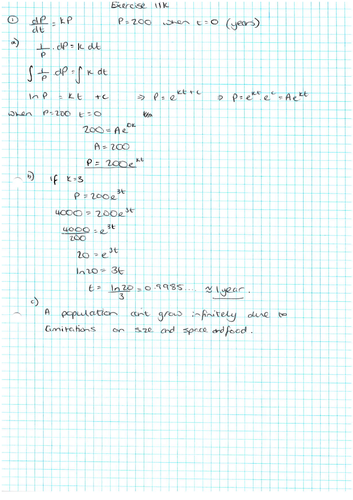 Exercise 11K
① dP/dt = kP P=200 when t=0 (years)
a) 1/P . dP = k dt
∫ 1/P dP = ∫ k dt
ln P = kt + c ⇒ P = e^(kt + c) ⇒ P = e^(kt) e^c = Ae^(kt)
when P=200 t=0
200 = Ae^(0k)
A = 200
P = 200e^(kt)
b) if k=3
P = 200e^(3t)
4000 = 200e^(3t)
4000/200 = e^(3t)
20 = e^(3t)
ln20 = 3t
t = ln20/3 = 0.9985... ≈ 1 year.
c)
A population cant grow infinitely due to
limitations on size and space and food.